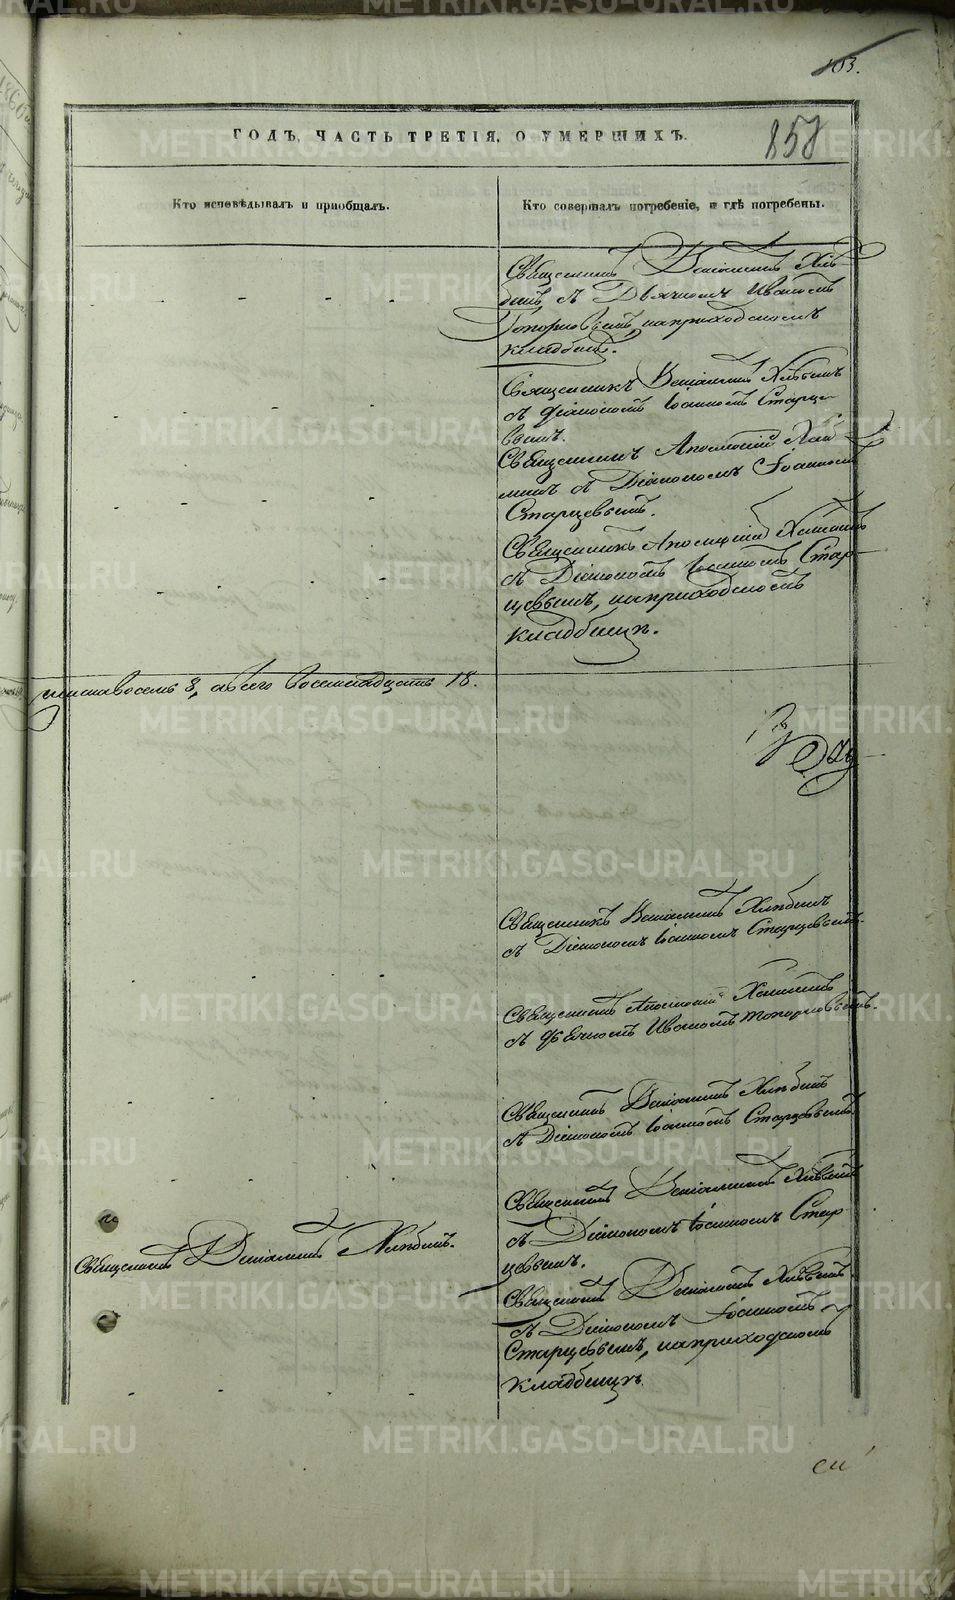 103.
ГОДЪ, ЧАСТЬ ТРЕТІЯ, О УМЕРШИХЪ.
858
Кто исповѣдывалъ и пріобщалъ.
Кто совершалъ погребеніе, и гдѣ погребены.
Священникъ Веніаминъ Хлѣ-
бинъ съ Дьячкомъ Иваномъ
Топорковымъ, на приходскомъ
кладбищѣ.
Священникъ Веніаминъ Хлѣбинъ
съ Діакономъ Іоанномъ Старце-
вымъ.
Священникъ
съ Діакономъ Іоанномъ
Старцевымъ.
Священникъ
съ Діакономъ Іоанномъ Стар-
цевымъ, на приходскомъ
кладбищѣ.
восемь 8, а всего восемнадцать 18.
Священникъ Веніаминъ Хлѣбинъ
съ Діакономъ Іоанномъ Старцевымъ.
Священникъ
съ Дьячкомъ Иваномъ Топорковымъ.
Священникъ Веніаминъ Хлѣбинъ
съ Діакономъ Іоанномъ Старцевымъ.
Священникъ Веніаминъ Хлѣбинъ
съ Діакономъ Іоанномъ Стар-
цевымъ.
Священникъ Веніаминъ Хлѣбинъ.
Священникъ Веніаминъ Хлѣбинъ
съ Діакономъ Іоанномъ
Старцевымъ, на приходскомъ
кладбищѣ.
METRIKI.GASO-URAL.RU